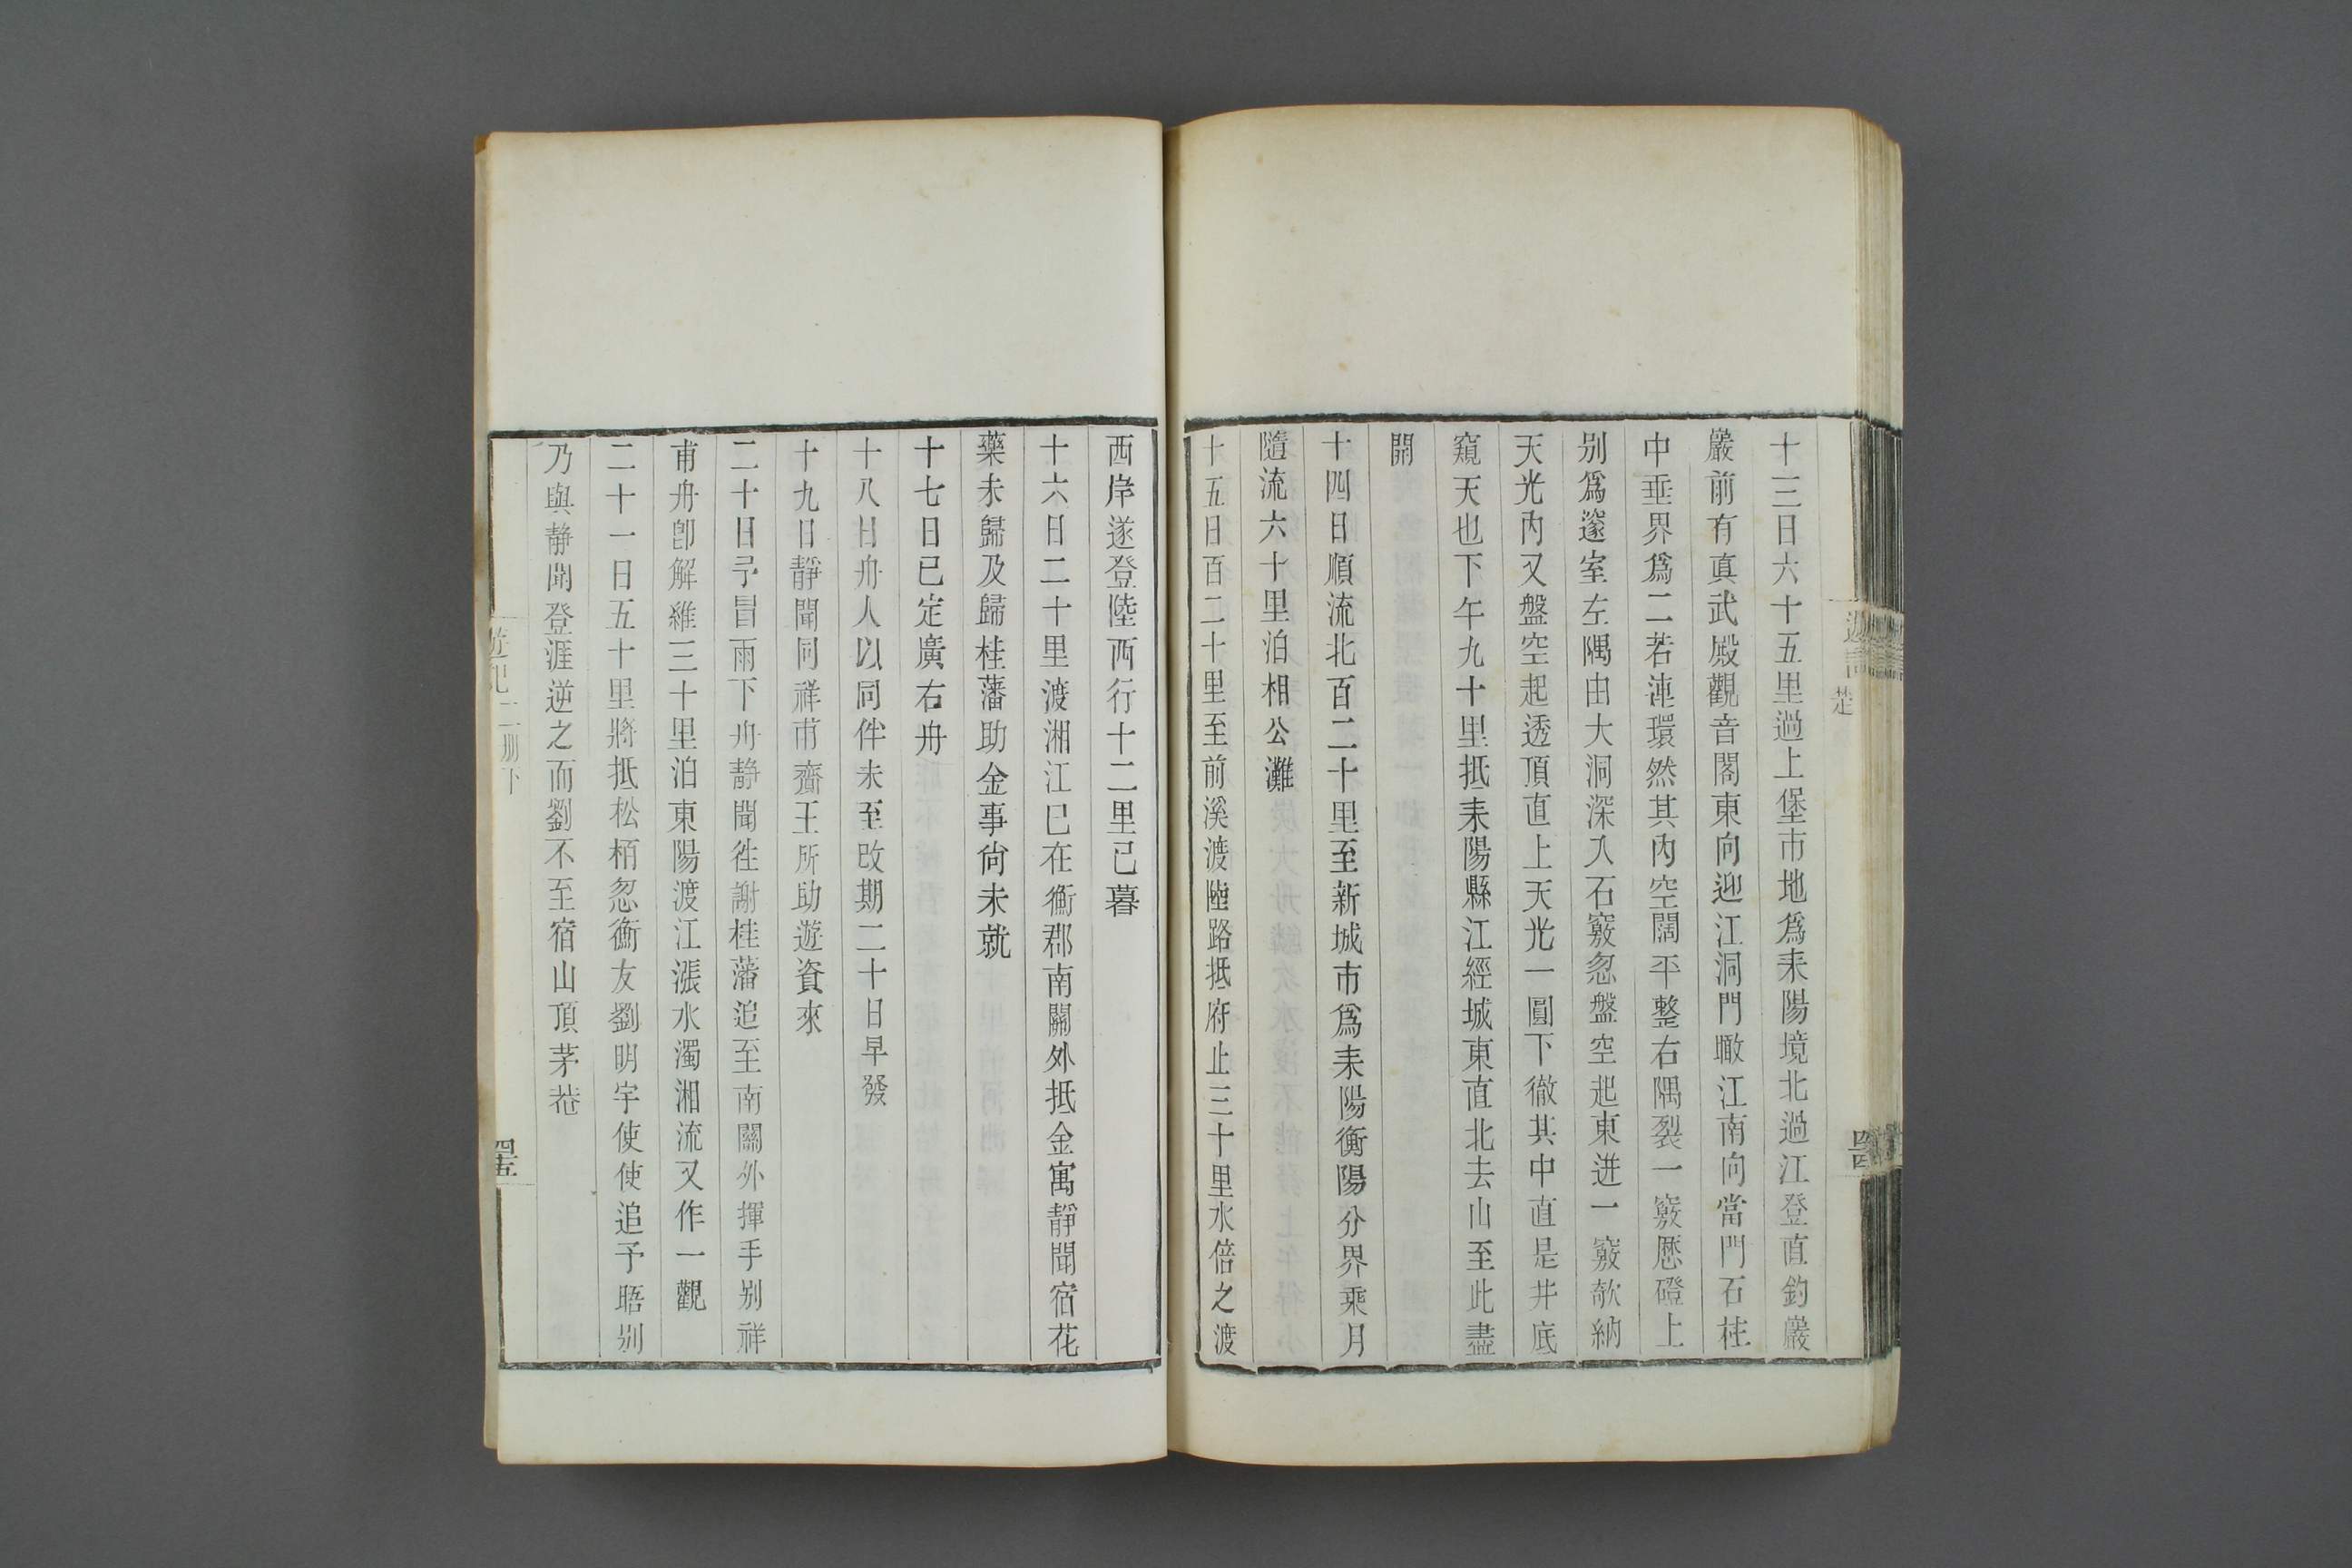 十三日六十五里過上堡市地爲耒陽境北過江登直釣巖
巖前有真武殿觀音閣東向迎江洞門瞰江南向當門石柱
中垂界爲二若連環然其內空闊平整右隅裂一竅歷磴上
别爲邃室左隅由大洞深入石竅忽盤空起東迸一竅欹納
天光內又盤空起透頂直上天光一圓下徹其中直是井底
窺天也下午九十里抵耒陽縣江經城東直北去山至此盡
開
十四日順流北百二十里至新城市爲耒陽衡陽分界乘月
隨流六十里泊相公灘
十五日百二十里至前溪渡陸路抵府止三十里水倍之渡
西岸遂登陸西行十二里已暮
十六日二十里渡湘江已在衡郡南關外抵金寓靜聞宿花
藥未歸及歸桂藩助金事尙未就
十七日已定廣右舟
十八日舟人以同伴未至改期二十日早發
十九日靜聞同祥甫齎王所助遊資來
二十日予冒雨下舟靜聞往謝桂藩追至南關外揮手别祥
甫舟卽解維三十里泊東陽渡江漲水濁湘流又作一觀
二十一日五十里將抵松栢忽衡友劉明宇使使追予晤别
乃與靜聞登涯逆之而劉不至宿山頂茅菴
遊記二册下
四五